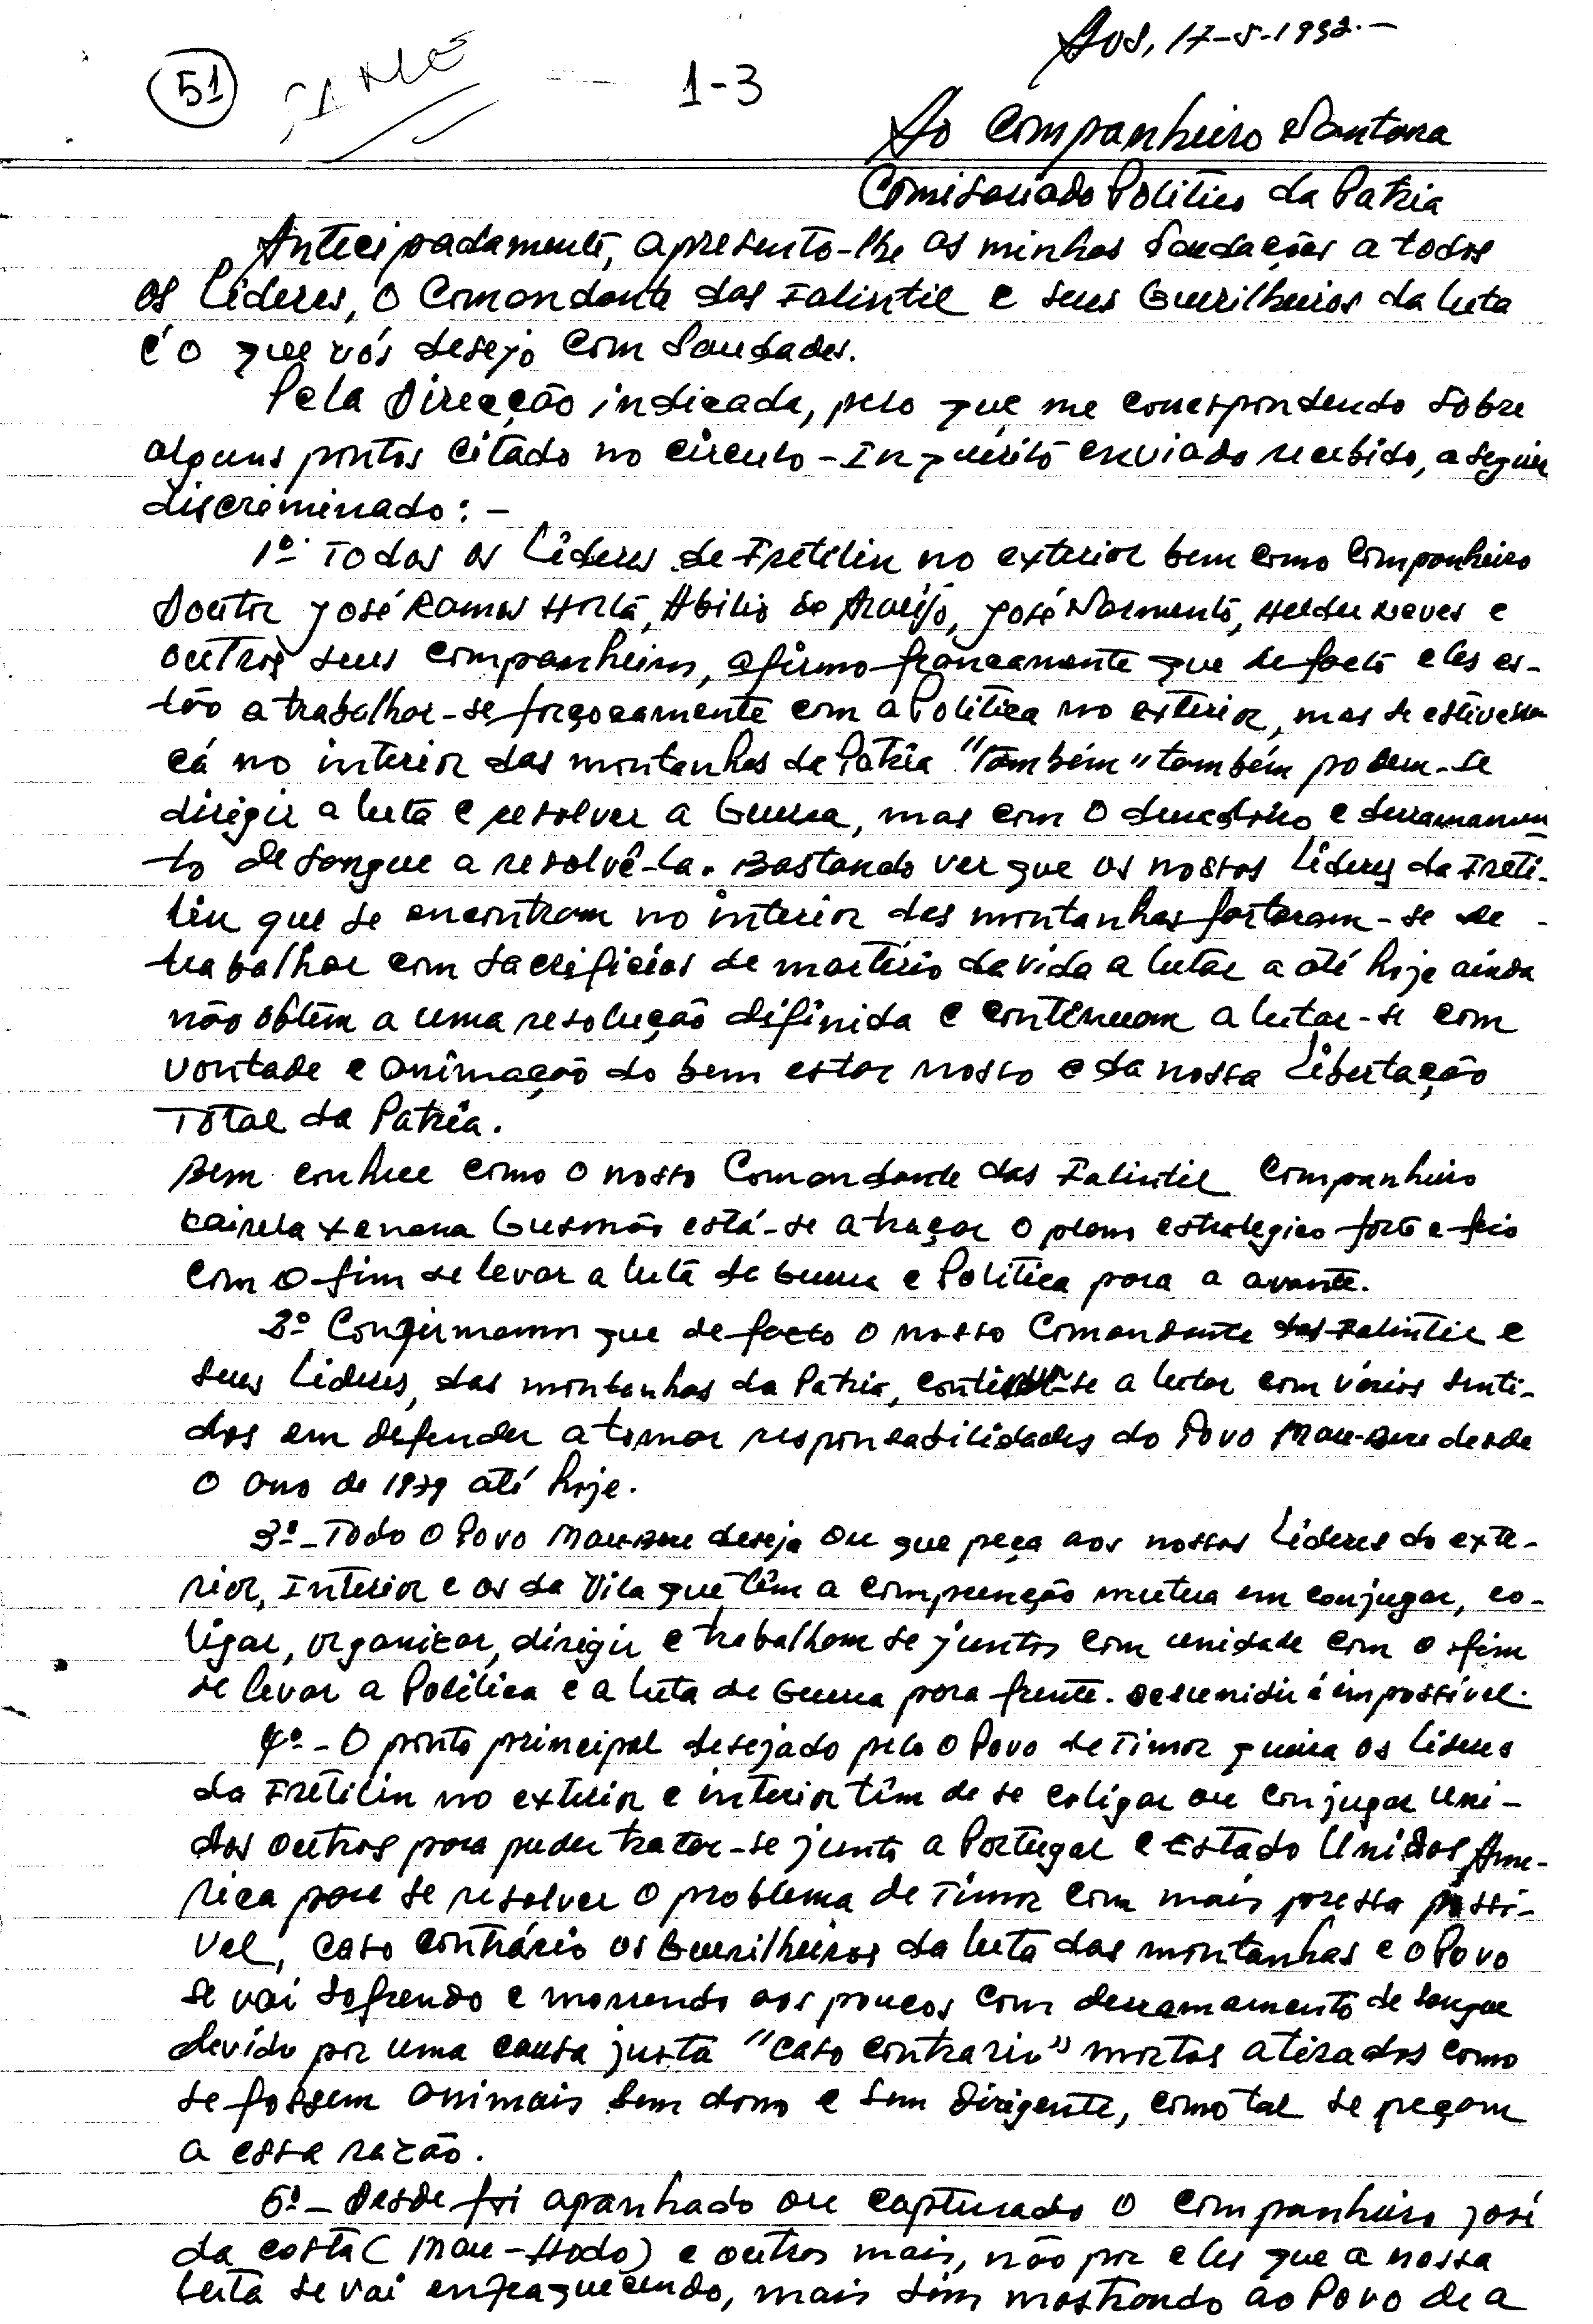 Aos, 17-5-1992.-
51
1-3
Ao Companheiro Santana
Comisariado Politico da Patria
Antecipadamente, apresento-lhe as minhas Saudações a todos
os Líderes, o Comandante das Falintil e seus Guerilheiros da luta
é o que vós desejo com Saudades.
Pela Direcção indicada, pelo que me correspondendo sobre
alguns pontos citado no circulo-Inquérito enviado recebido, a seguir
discriminado:-
1º- Todos os Líderes de Fretilin no exterior bem como Companheiro
Doutor José Ramos Horta, Abilio de Araújo, José Narmento, Helder Neves e
outros seus companheiros, afirmo francamente que de facto eles es-
tão a trabalhar-se forçoçamente com a Política no exterior, mas se estivessem
cá no interior das montanhas da Pátria "Também" também podem-se
dirigir a luta e resolver a Guerra, mas com o e derramamen
to de sangue a resolvê-la. Bastando ver que os nossos Líderes da Freti-
lin que se encontram no interior das montanhas fartaram-se de
trabalhar com sacrifícios de martírio da vida a lutar a até hoje ainda
não obtêm a uma resolução difinida e continuam a lutar-se com
vontade e animação do bem estar nosso e da nossa Libertação
Total da Patria.
Bem conhece como o nosso Comandante das Falintil Companheiro
Kairela Xanana Gusmão está-se a traçar o plano estrategico forte e feio
com o fim de levar a luta de Guerra e Politica para a avante.
2º- Confirmamos que de facto o nosso Comandante das Falintil e
seus Líderes, das montanhas da Patria, -se a lutar com vários senti-
dos em defender a tomar responsabilidades do Povo Mau-Bere desde
o ano de 1979 até hoje.
3º- Todo o Povo Mau-Bere deseja ou que peça aos nossos Líderes do exte-
rior, Interior e os da Vila que têm a compreenção mutua em conjugar, co-
ligar, organizar, dirigir e trabalham se juntos com unidade com o fim
de levar a Política e a luta de Guerra para frente. Desunidir é impossível.
4º- O ponto principal desejado pelo o Povo de Timor queira os lideres
da Fretilin no exterior e interior têm de se coligar ou conjugar uni-
dos outros para puder tratar-se junto a Portugal e Estado Unidos Ame-
rica para se resolver o problema de Timor com mais pressa possi-
vel, caso contrário os Guerilheiros da luta das montanhas e o Povo
se vai sofrendo e morrendo aos poucos com derramamento de sangue
devido por uma causa justa "caso contrario" mortos atirados como
se fossem animais sem dono e sem Dirigente, como tal se peçam
a essa razão.
5º- Desde foi apanhado ou capturado o Companheiro José
da Costa (Mau-Hodo) e outros mais, não por eles que a nossa
luta se vai enfraquecendo, mais sim mostrando ao Povo de a